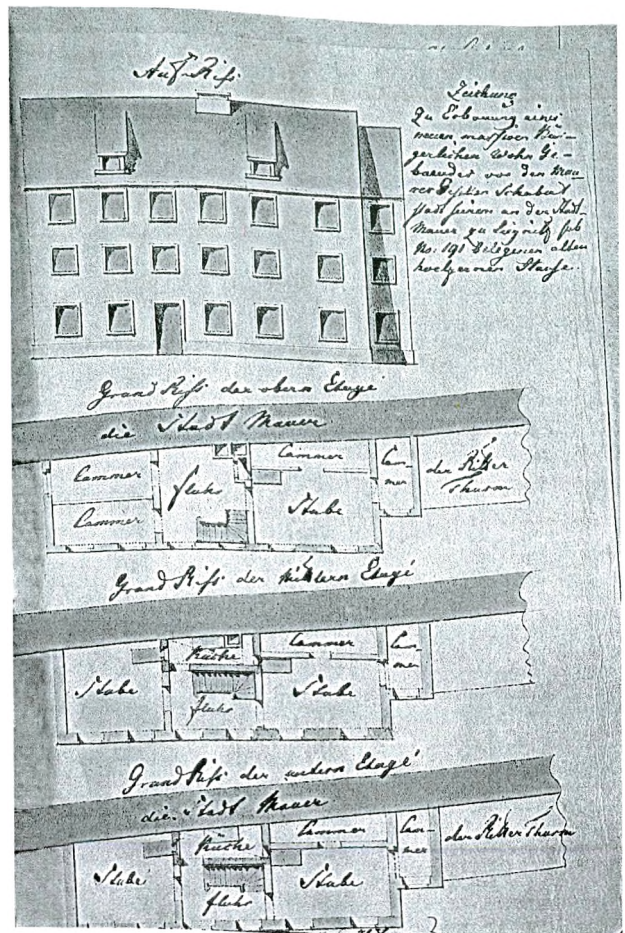 Auf-Riß
Zeichnung
zu Erbauung eines
neuen massiven Bür-
gerlichen Wohn Ge-
baeudes vor den Mau
rer Gesellen Schubert
statt seinem an der Stadt-
Mauer zu Liegnitz sub
No. 191 Belegenen alten
hoelzernen Hause.
Grund Riß der obern Etage
die Stadt Mauer
Cammer
Cammer
fluhr
Cammer
Stube
Cam-
mer
der Ritter
Thurm
Grund Riß der mittlern Etage
Stube
Küche
fluhr
Cammer
Stube
Cam-
mer
Grund Riß der untern Etage
die Stadt Mauer
Stube
Küche
fluhr
Cammer
Stube
Cam-
mer
der Ritter Thurm